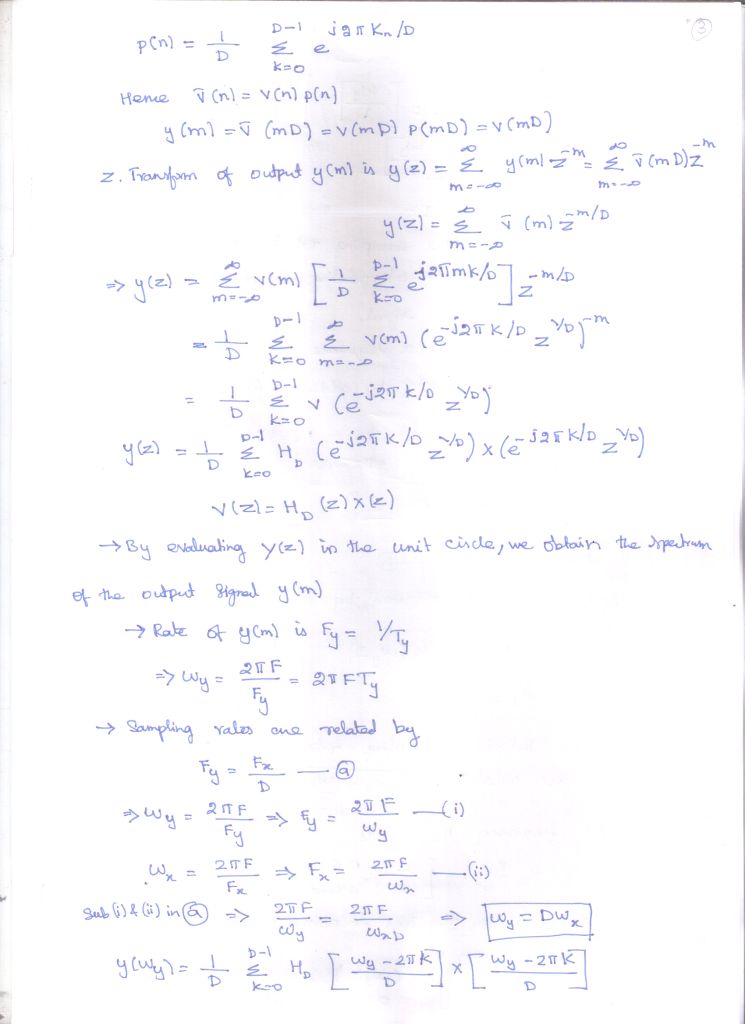 ③
p(n) = 1/D Σ_{k=0}^{D-1} e^{j2πkn/D}
Hence ṽ(n) = v(n) p(n)
y(m) = ṽ(mD) = v(mD) p(mD) = v(mD)
Z. Transform of output y(m) is y(z) = Σ_{m=-∞}^{∞} y(m) z^{-m} = Σ_{m=-∞}^{∞} ṽ(mD) z^{-m}
y(z) = Σ_{m=-∞}^{∞} ṽ(m) z^{-m/D}
⇒ y(z) = Σ_{m=-∞}^{∞} v(m) [ 1/D Σ_{k=0}^{D-1} e^{j2πmk/D} ] z^{-m/D}
= 1/D Σ_{k=0}^{D-1} Σ_{m=-∞}^{∞} v(m) (e^{-j2πk/D} z^{1/D})^{-m}
= 1/D Σ_{k=0}^{D-1} v (e^{-j2πk/D} z^{1/D})
y(z) = 1/D Σ_{k=0}^{D-1} H_D (e^{-j2πk/D} z^{1/D}) x (e^{-j2πk/D} z^{1/D})
v(z) = H_D(z) x(z)
→ By evaluating y(z) in the unit circle, we obtain the spectrum
of the output signal y(m)
→ Rate of y(m) is Fy = 1/Ty
⇒ ωy = 2πF/Fy = 2πFTy
→ Sampling rates are related by
Fy = Fx/D — ⓐ
⇒ ωy = 2πF/Fy ⇒ Fy = 2πF/ωy — (i)
ωx = 2πF/Fx ⇒ Fx = 2πF/ωx — (ii)
Sub (i) & (ii) in ⓐ ⇒ 2πF/ωy = 2πF/ωxD ⇒ ωy = Dωx
y(ωy) = 1/D Σ_{k=0}^{D-1} H_D [ (ωy - 2πk)/D ] x [ (ωy - 2πk)/D ]